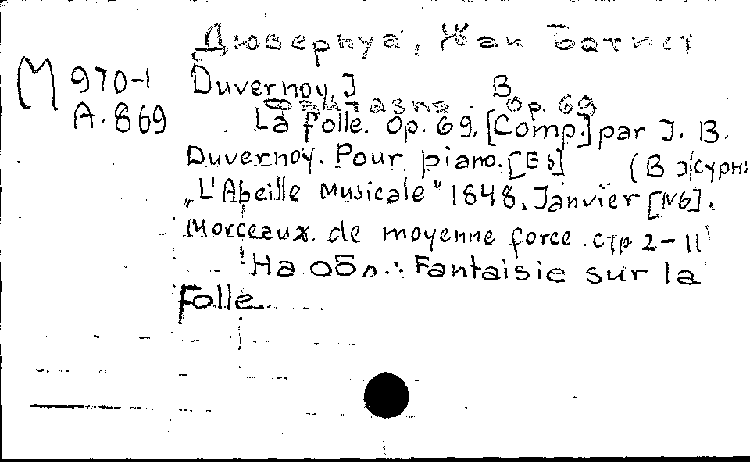 Дювернуа, Жан Батист
М 970-1
А. 869
Duvernoy, J B.
Фантазия. Op. 69
La folle. Op. 69. [Comp.] par J. B.
Duvernoy. Pour piano. [Es] (В журн:
„L'Abeille Musicale" 1848, Janvier [N6].
Morceaux de moyenne force. стр 2-11
На обл.: Fantaisie sur la
Folle